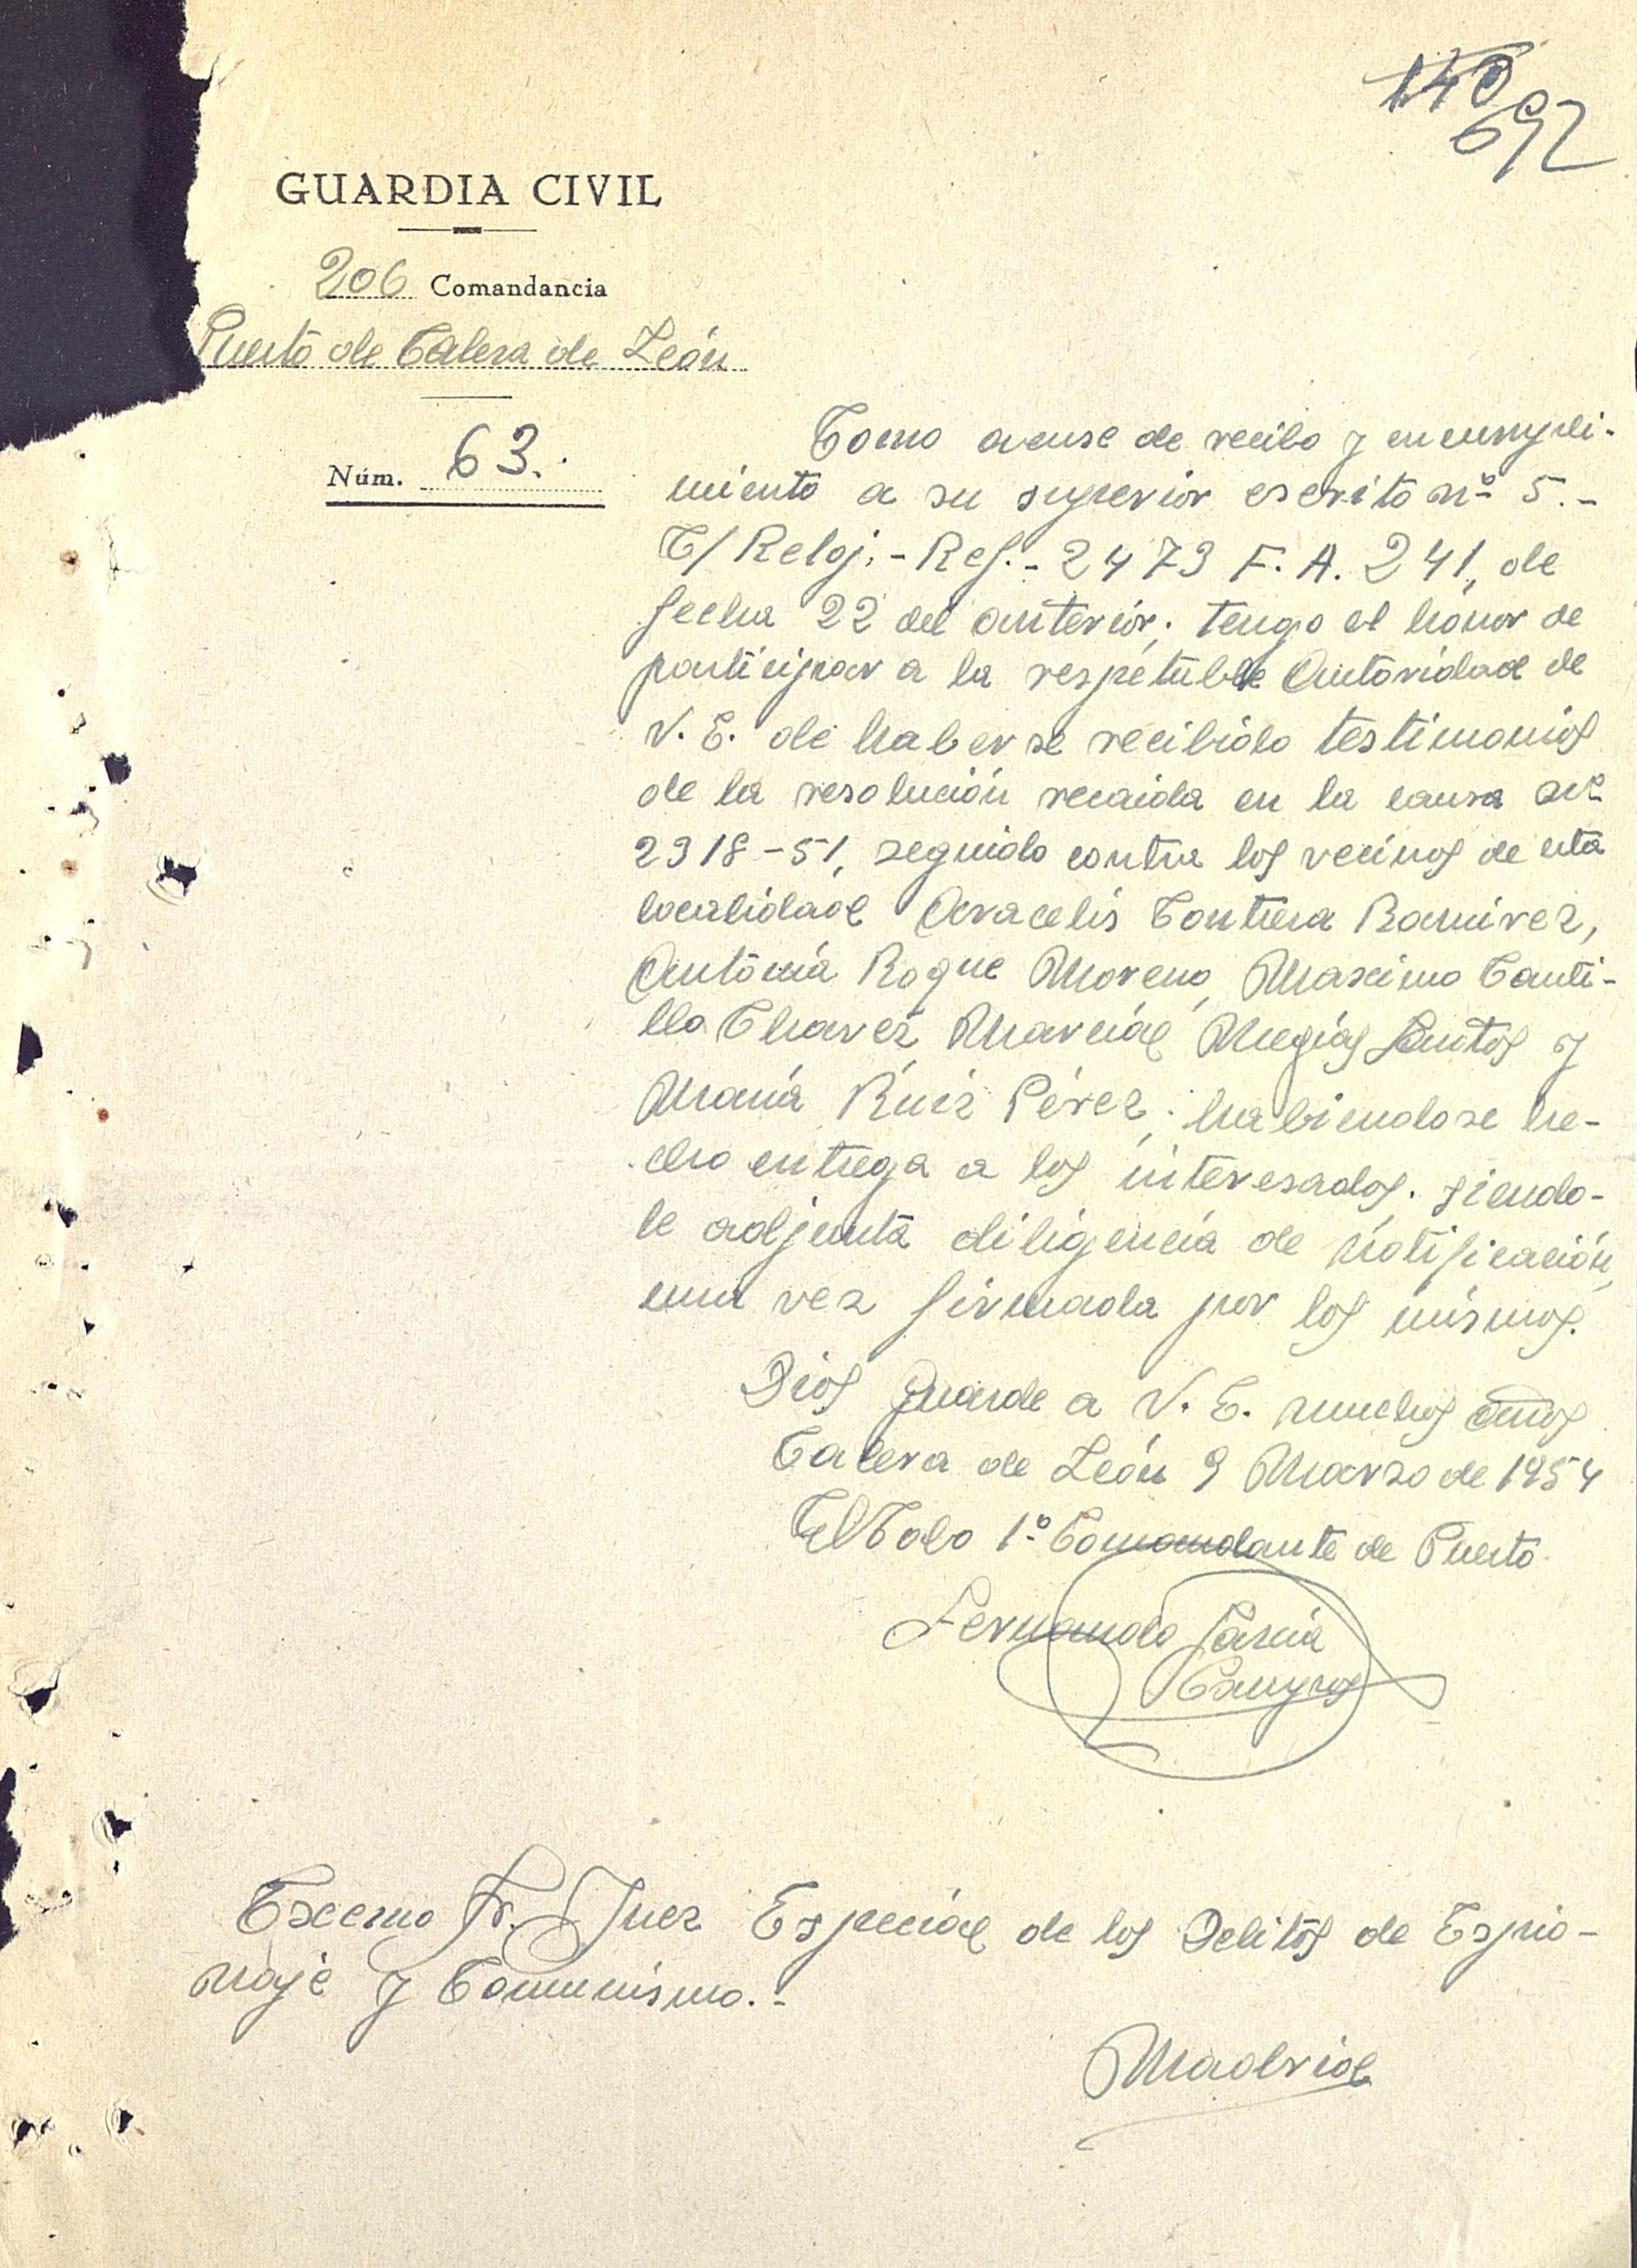 140
692
GUARDIA CIVIL
206 Comandancia
Puesto de Calera de León
Núm. 63.
Como acuse de recibo y en cumpli-
miento a su superior escrito nº 5.-
C/ Reloj.- Ref.- 2473 F. A. 241, de
fecha 22 del anterior; tengo el honor de
participar a la respetable Autoridad de
V. E. de haberse recibido testimonios
de la resolución recaida en la causa nº
2318-51, seguido contra los vecinos de esta
localidad Aracelis Contrera Ramirez,
Antonia Roque Moreno, Maximo Canti-
llo Chavez, Marcial Megías Santos y
María Ruiz Pérez; habiendose he-
cho entrega a los interesados. siendo-
le adjunta diligencia de notificación,
una vez firmada por los mismos.
Dios guarde a V. E. muchos años
Calera de León 9 Marzo de 1954
El Cabo 1º Comandante de Puesto
Fernando García
Campos
Excemo Sr. Juez Especial de los Delitos de Espio-
naje y Comunismo.-
Madrid